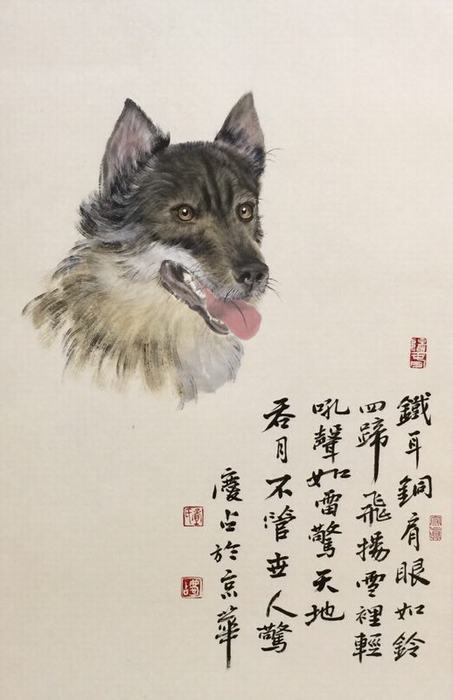 鐵耳銅肩眼如鈴
四蹄飛揚雪裡輕
吼聲如雷驚天地
吞月不管世人驚
慶占於京華